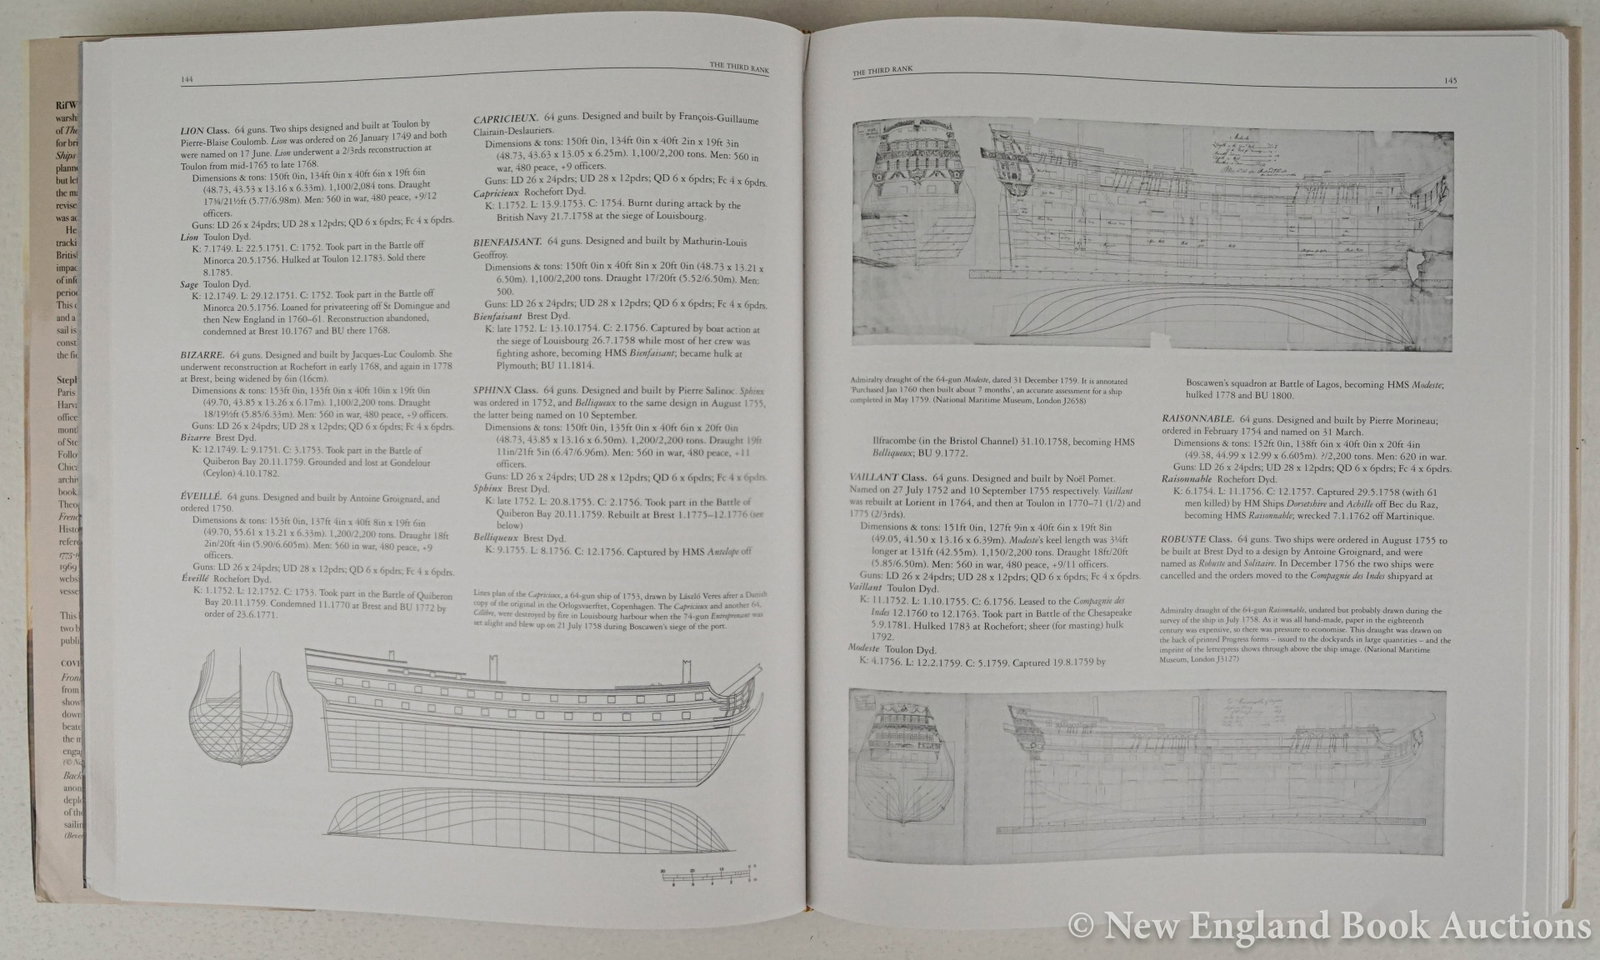 144
THE THIRD RANK
LION Class. 64 guns. Two ships designed and built at Toulon by
Pierre-Blaise Coulomb. Lion was ordered on 26 January 1749 and both
were named on 17 June. Lion underwent a 2/3rds reconstruction at
Toulon from mid-1765 to late 1768.
Dimensions & tons: 150ft 0in, 134ft 0in x 40ft 6in x 19ft 6in
(48.73, 43.53 x 13.16 x 6.33m). 1,100/2,084 tons. Draught
17¾/21½ft (5.77/6.98m). Men: 560 in war, 480 peace, +9/12
officers.
Guns: LD 26 x 24pdrs; UD 28 x 12pdrs; QD 6 x 6pdrs; Fc 4 x 6pdrs.
Lion Toulon Dyd.
K: 7.1749. L: 22.5.1751. C: 1752. Took part in the Battle off
Minorca 20.5.1756. Hulked at Toulon 12.1783. Sold there
8.1785.
Sage Toulon Dyd.
K: 12.1749. L: 29.12.1751. C: 1752. Took part in the Battle off
Minorca 20.5.1756. Loaned for privateering off St Domingue and
then New England in 1760–61. Reconstruction abandoned,
condemned at Brest 10.1767 and BU there 1768.
BIZARRE. 64 guns. Designed and built by Jacques-Luc Coulomb. She
underwent reconstruction at Rochefort in early 1768, and again in 1778
at Brest, being widened by 6in (16cm).
Dimensions & tons: 153ft 0in, 135ft 0in x 40ft 10in x 19ft 0in
(49.70, 43.85 x 13.26 x 6.17m). 1,100/2,200 tons. Draught
18/19½ft (5.85/6.33m). Men: 560 in war, 480 peace, +9 officers.
Guns: LD 26 x 24pdrs; UD 28 x 12pdrs; QD 6 x 6pdrs; Fc 4 x 6pdrs.
Bizarre Brest Dyd.
K: 12.1749. L: 9.1751. C: 3.1753. Took part in the Battle of
Quiberon Bay 20.11.1759. Grounded and lost at Gondelour
(Ceylon) 4.10.1782.
ÉVEILLÉ. 64 guns. Designed and built by Antoine Groignard, and
ordered 1750.
Dimensions & tons: 153ft 0in, 137ft 4in x 40ft 8in x 19ft 6in
(49.70, 55.61 x 13.21 x 6.33m). 1,200/2,200 tons. Draught 18ft
2in/20ft 4in (5.90/6.605m). Men: 560 in war, 480 peace, +9
officers.
Guns: LD 26 x 24pdrs; UD 28 x 12pdrs; QD 6 x 6pdrs; Fc 4 x 6pdrs.
Éveillé Rochefort Dyd.
K: 1.1752. L: 12.1752. C: 1753. Took part in the Battle of Quiberon
Bay 20.11.1759. Condemned 11.1770 at Brest and BU 1772 by
order of 23.6.1771.
CAPRICIEUX. 64 guns. Designed and built by François-Guillaume
Clairain-Deslauriers.
Dimensions & tons: 150ft 0in, 134ft 0in x 40ft 2in x 19ft 3in
(48.73, 43.63 x 13.05 x 6.25m). 1,100/2,200 tons. Men: 560 in
war, 480 peace, +9 officers.
Guns: LD 26 x 24pdrs; UD 28 x 12pdrs; QD 6 x 6pdrs; Fc 4 x 6pdrs.
Capricieux Rochefort Dyd.
K: 1.1752. L: 13.9.1753. C: 1754. Burnt during attack by the
British Navy 21.7.1758 at the siege of Louisbourg.
BIENFAISANT. 64 guns. Designed and built by Mathurin-Louis
Geoffroy.
Dimensions & tons: 150ft 0in x 40ft 8in x 20ft 0in (48.73 x 13.21 x
6.50m). 1,100/2,200 tons. Draught 17/20ft (5.52/6.50m). Men:
500.
Guns: LD 26 x 24pdrs; UD 28 x 12pdrs; QD 6 x 6pdrs; Fc 4 x 6pdrs.
Bienfaisant Brest Dyd.
K: late 1752. L: 13.10.1754. C: 2.1756. Captured by boat action at
the siege of Louisbourg 26.7.1758 while most of her crew was
fighting ashore, becoming HMS Bienfaisant; became hulk at
Plymouth; BU 11.1814.
SPHINX Class. 64 guns. Designed and built by Pierre Salinoc. Sphinx
was ordered in 1752, and Belliqueux to the same design in August 1755,
the latter being named on 10 September.
Dimensions & tons: 150ft 0in, 135ft 0in x 40ft 6in x 20ft 0in
(48.73, 43.85 x 13.16 x 6.50m). 1,200/2,200 tons. Draught 19ft
11in/21ft 5in (6.47/6.96m). Men: 560 in war, 480 peace, +11
officers.
Guns: LD 26 x 24pdrs; UD 28 x 12pdrs; QD 6 x 6pdrs; Fc 4 x 6pdrs.
Sphinx Brest Dyd.
K: late 1752. L: 20.8.1755. C: 2.1756. Took part in the Battle of
Quiberon Bay 20.11.1759. Rebuilt at Brest 1.1775–12.1776 (see
below)
Belliqueux Brest Dyd.
K: 9.1755. L: 8.1756. C: 12.1756. Captured by HMS Antelope off
Lines plan of the Capricieux, a 64-gun ship of 1753, drawn by László Veres after a Danish
copy of the original in the Orlogsvaerftet, Copenhagen. The Capricieux and another 64,
Célèbre, were destroyed by fire in Louisbourg harbour when the 74-gun Entreprenant was
set alight and blew up on 21 July 1758 during Boscawen's siege of the port.
THE THIRD RANK
145
Admiralty draught of the 64-gun Modeste, dated 31 December 1759. It is annotated
'Purchased Jan 1760 then built about 7 months', an accurate assessment for a ship
completed in May 1759. (National Maritime Museum, London J2658)
Ilfracombe (in the Bristol Channel) 31.10.1758, becoming HMS
Belliqueux; BU 9.1772.
VAILLANT Class. 64 guns. Designed by Noël Pomet.
Named on 27 July 1752 and 10 September 1755 respectively. Vaillant
was rebuilt at Lorient in 1764, and then at Toulon in 1770–71 (1/2) and
1775 (2/3rds).
Dimensions & tons: 151ft 0in, 127ft 9in x 40ft 6in x 19ft 8in
(49.05, 41.50 x 13.16 x 6.39m). Modeste's keel length was 3¼ft
longer at 131ft (42.55m). 1,150/2,200 tons. Draught 18ft/20ft
(5.85/6.50m). Men: 560 in war, 480 peace, +9/11 officers.
Guns: LD 26 x 24pdrs; UD 28 x 12pdrs; QD 6 x 6pdrs; Fc 4 x 6pdrs.
Vaillant Toulon Dyd.
K: 11.1752. L: 1.10.1755. C: 6.1756. Leased to the Compagnie des
Indes 12.1760 to 12.1763. Took part in Battle of the Chesapeake
5.9.1781. Hulked 1783 at Rochefort; sheer (for masting) hulk
1792.
Modeste Toulon Dyd.
K: 4.1756. L: 12.2.1759. C: 5.1759. Captured 19.8.1759 by
Boscawen's squadron at Battle of Lagos, becoming HMS Modeste;
hulked 1778 and BU 1800.
RAISONNABLE. 64 guns. Designed and built by Pierre Morineau;
ordered in February 1754 and named on 31 March.
Dimensions & tons: 152ft 0in, 138ft 6in x 40ft 0in x 20ft 4in
(49.38, 44.99 x 12.99 x 6.605m). ?/2,200 tons. Men: 620 in war.
Guns: LD 26 x 24pdrs; UD 28 x 12pdrs; QD 6 x 6pdrs; Fc 4 x 6pdrs.
Raisonnable Rochefort Dyd.
K: 6.1754. L: 11.1756. C: 12.1757. Captured 29.5.1758 (with 61
men killed) by HM Ships Dorsetshire and Achille off Bec du Raz,
becoming HMS Raisonnable; wrecked 7.1.1762 off Martinique.
ROBUSTE Class. 64 guns. Two ships were ordered in August 1755 to
be built at Brest Dyd to a design by Antoine Groignard, and were
named as Robuste and Solitaire. In December 1756 the two ships were
cancelled and the orders moved to the Compagnie des Indes shipyard at
Admiralty draught of the 64-gun Raisonnable, undated but probably drawn during the
survey of the ship in July 1758. As it was all hand-made, paper in the eighteenth
century was expensive, so there was pressure to economise. This draught was drawn on
the back of printed Progress forms – issued to the dockyards in large quantities – and the
imprint of the letterpress shows through above the ship image. (National Maritime
Museum, London J3127)
© New England Book Auctions